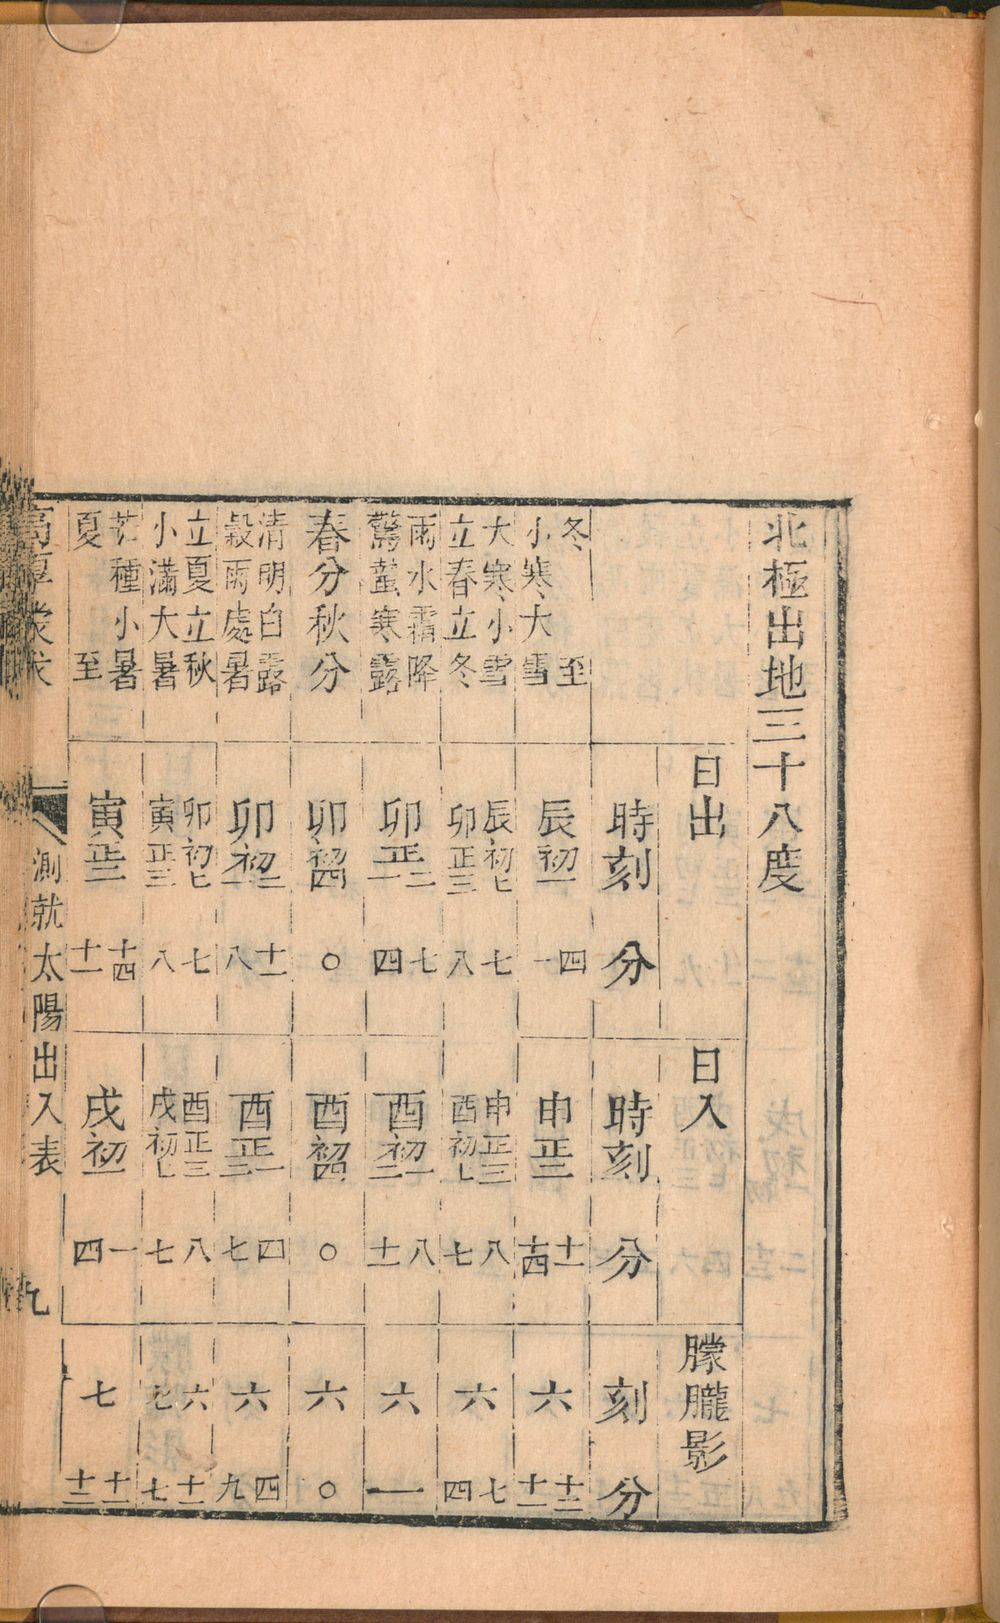 北極出地三十八度
日出 日入 朦朧影
時刻 分 時刻 分 刻 分
冬至 四 十一 十三
小寒大雪 辰初一 一 申正三 十四 六 十二
大寒小雪 辰初七 七 申正三 八 七
立春立冬 卯正三 八 酉初七 七 六 四
雨水霜降 二 七 一 八
驚蟄寒露 卯正一 四 酉初二 十一 六 一
春分秋分 卯初四 〇 酉初四 〇 六 〇
清明白露 二 十一 一 四 四
穀雨處暑 卯初一 八 酉正二 七 六 九
立夏立秋 卯初七 七 酉正三 八 六 十一
小滿大暑 寅正三 八 戌初七 七 七 七
芒種小暑 十四 一 十一
夏至 寅正三 十一 戌初一 四 七 十三
高厚蒙求 測就太陽出入表 九